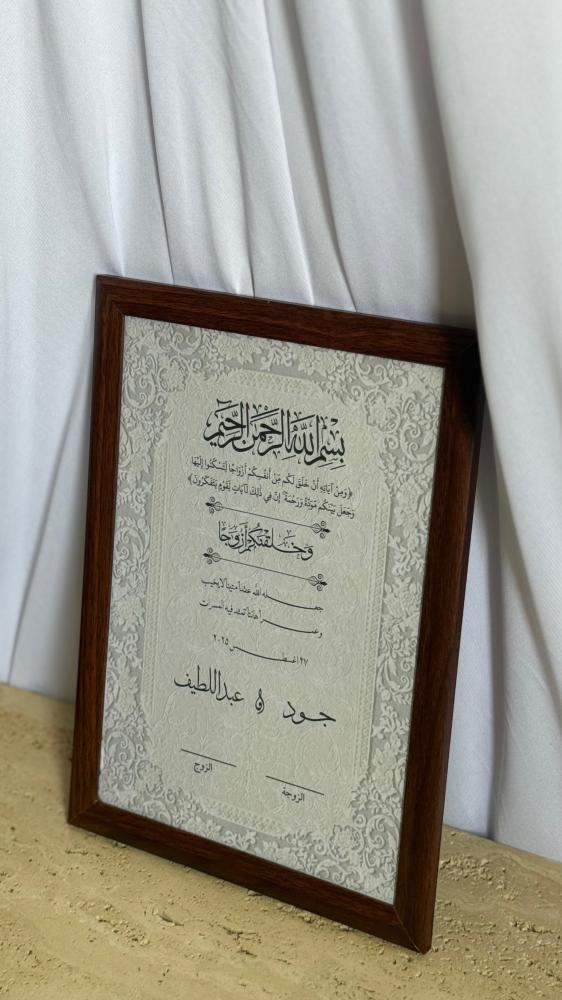 بِسْمِ اللَّهِ الرَّحْمَنِ الرَّحِيمِ
﴿وَمِنْ آيَاتِهِ أَنْ خَلَقَ لَكُم مِّنْ أَنفُسِكُمْ أَزْوَاجًا لِّتَسْكُنُوا إِلَيْهَا
وَجَعَلَ بَيْنَكُم مَّوَدَّةً وَرَحْمَةً ۚ إِنَّ فِي ذَٰلِكَ لَآيَاتٍ لِّقَوْمٍ يَتَفَكَّرُونَ﴾
وَخَلَقْنَكُمْ أَزْوَجًا
جعله الله عشا متينا لا يخيب
وعمرا هانئا تمتد فيه المسرات
٢٧ اغسطس ٢٠٢٥
جود & عبداللطيف
الزوجة
الزوج